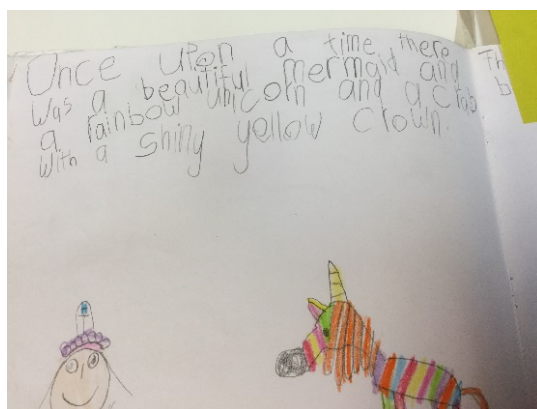 Once upon a time there
was a beautiful mermaid and
a rainbow unicorn and a crab
with a shiny yellow crown.